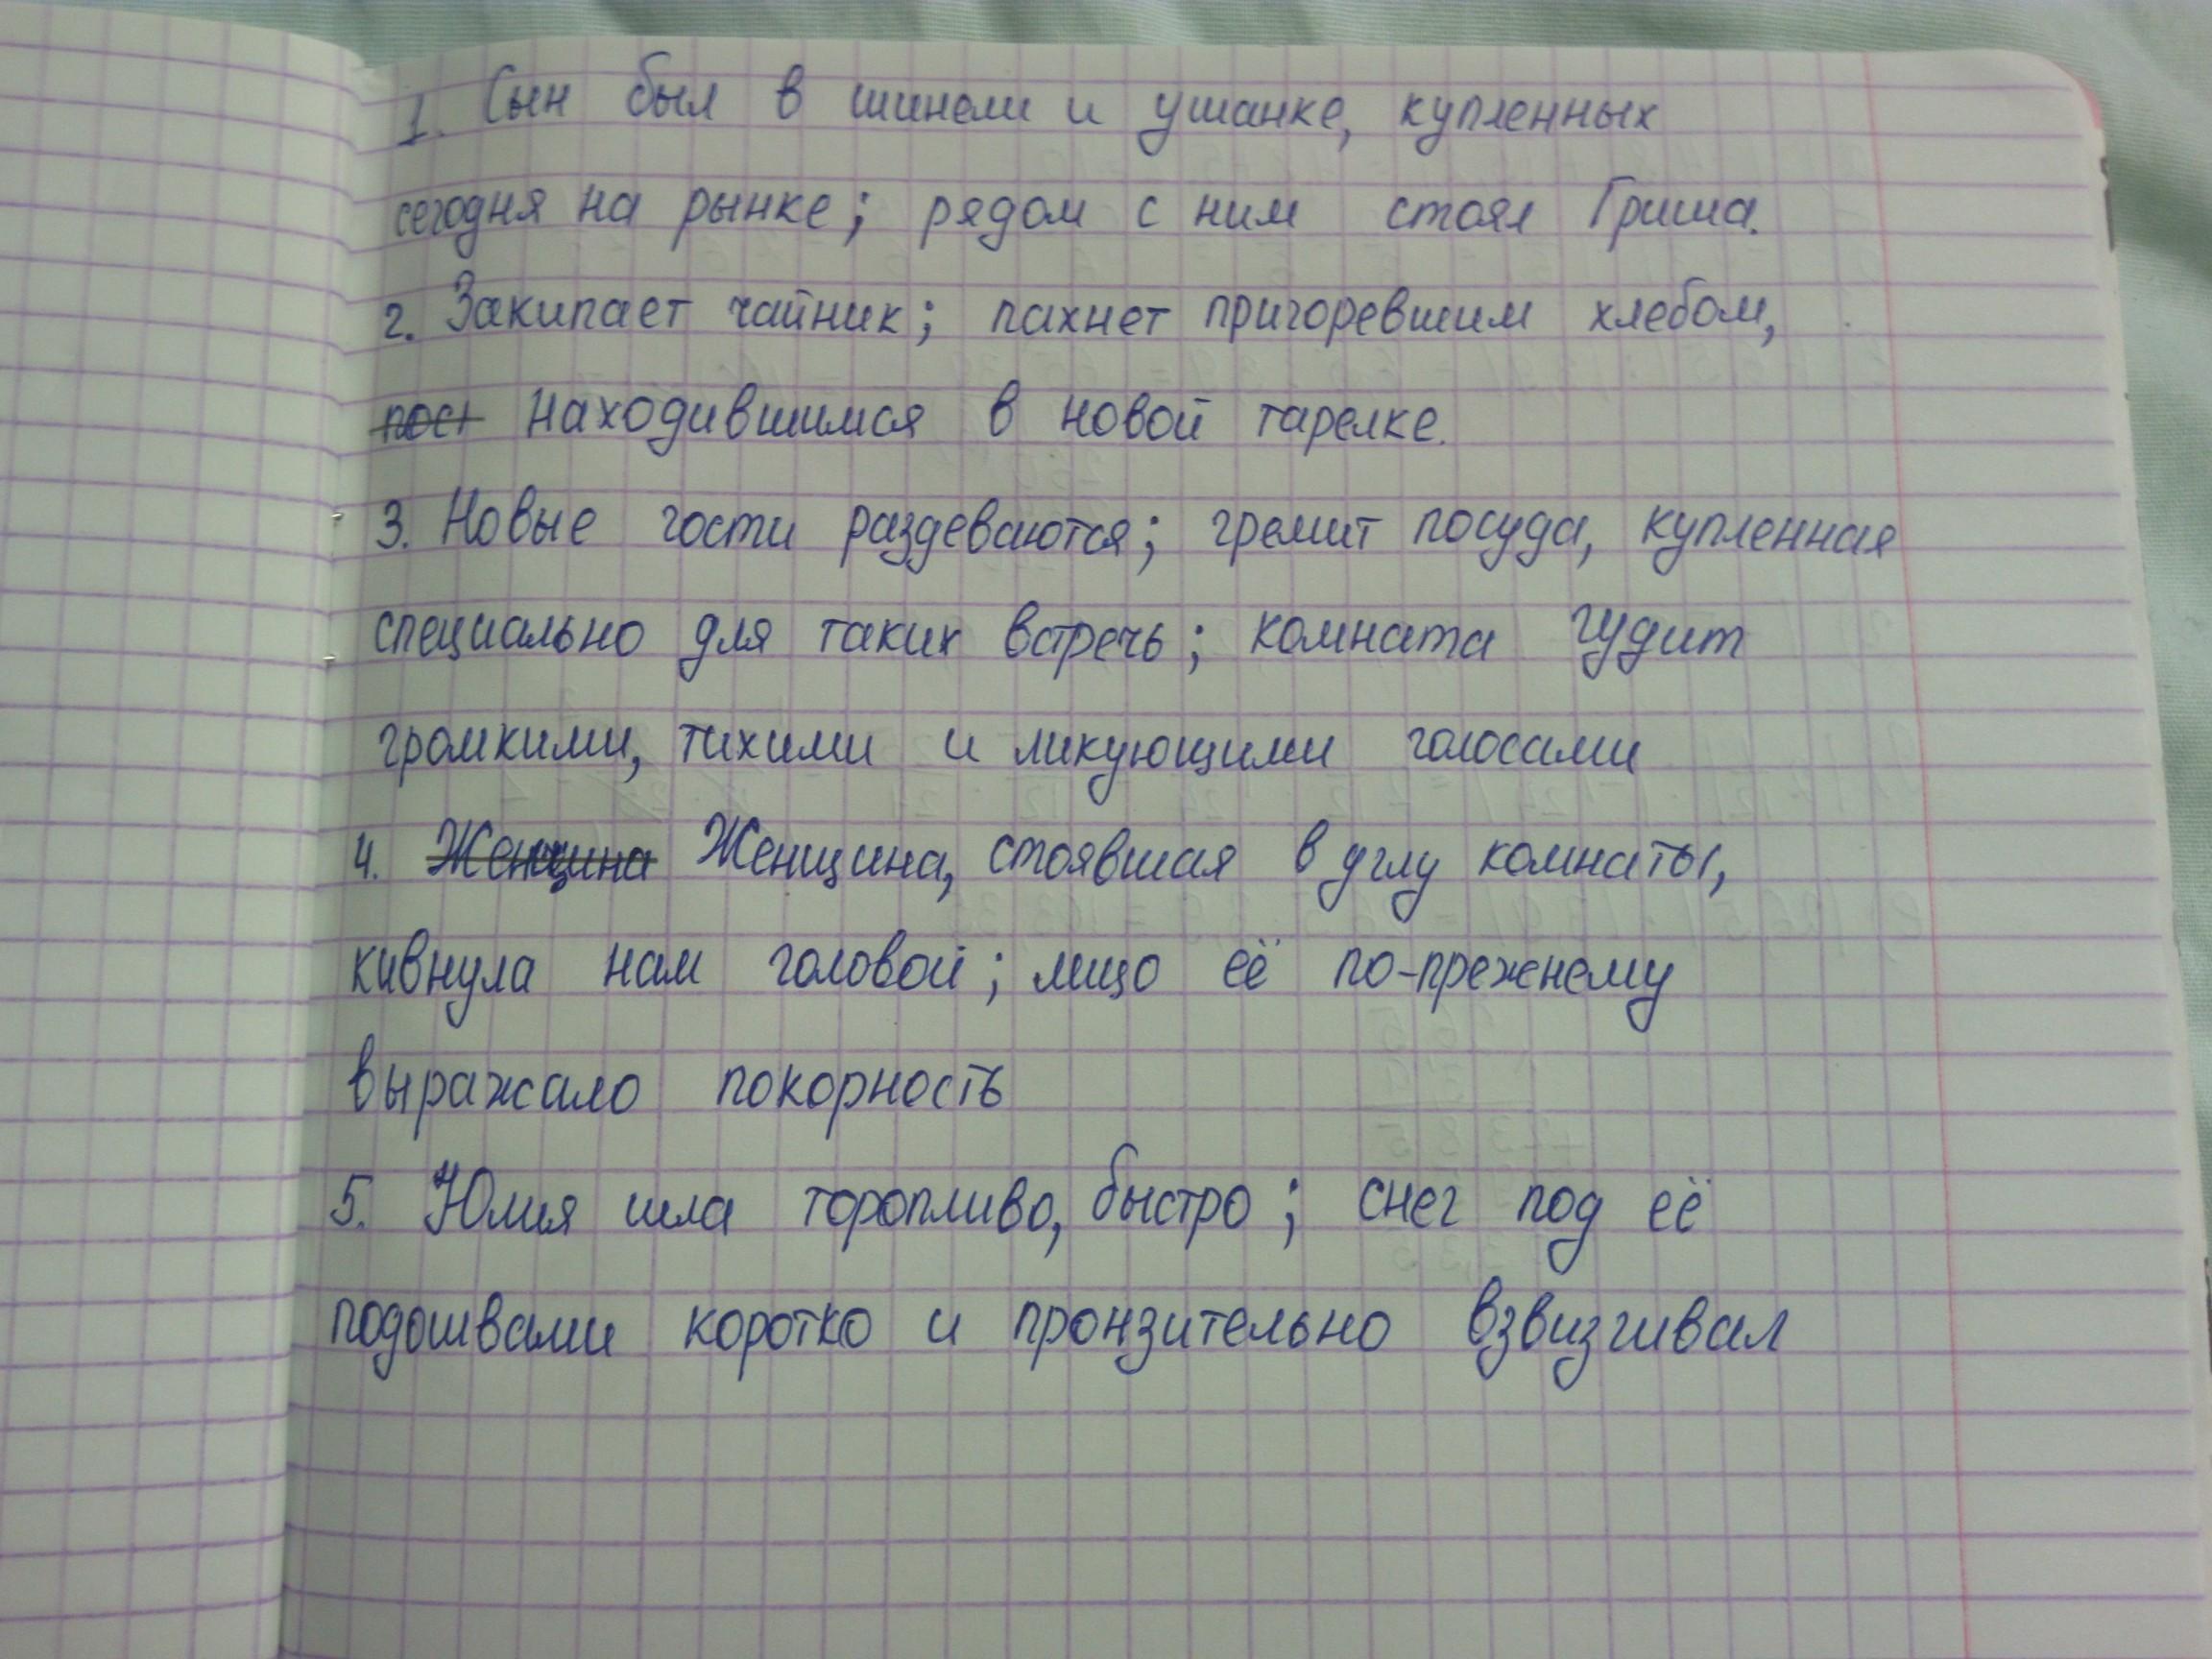 1. Сын был в шинели и ушанке, купленных
сегодня на рынке; рядом с ним стоял Гриша.
2. Закипает чайник; пахнет пригоревшим хлебом,
пост находившимся в новой тарелке.
3. Новые гости раздеваются; гремит посуда, купленная
специально для таких встречь; комната гудит
громкими, тихими и ликующими голосами
4. Женщина Женщина, стоявшая в углу комнаты,
кивнула нам головой; лицо её по-преженему
выражало покорность
5. Юлия шла торопливо, быстро; снег под её
подошвами коротко и пронзительно взвизгивал